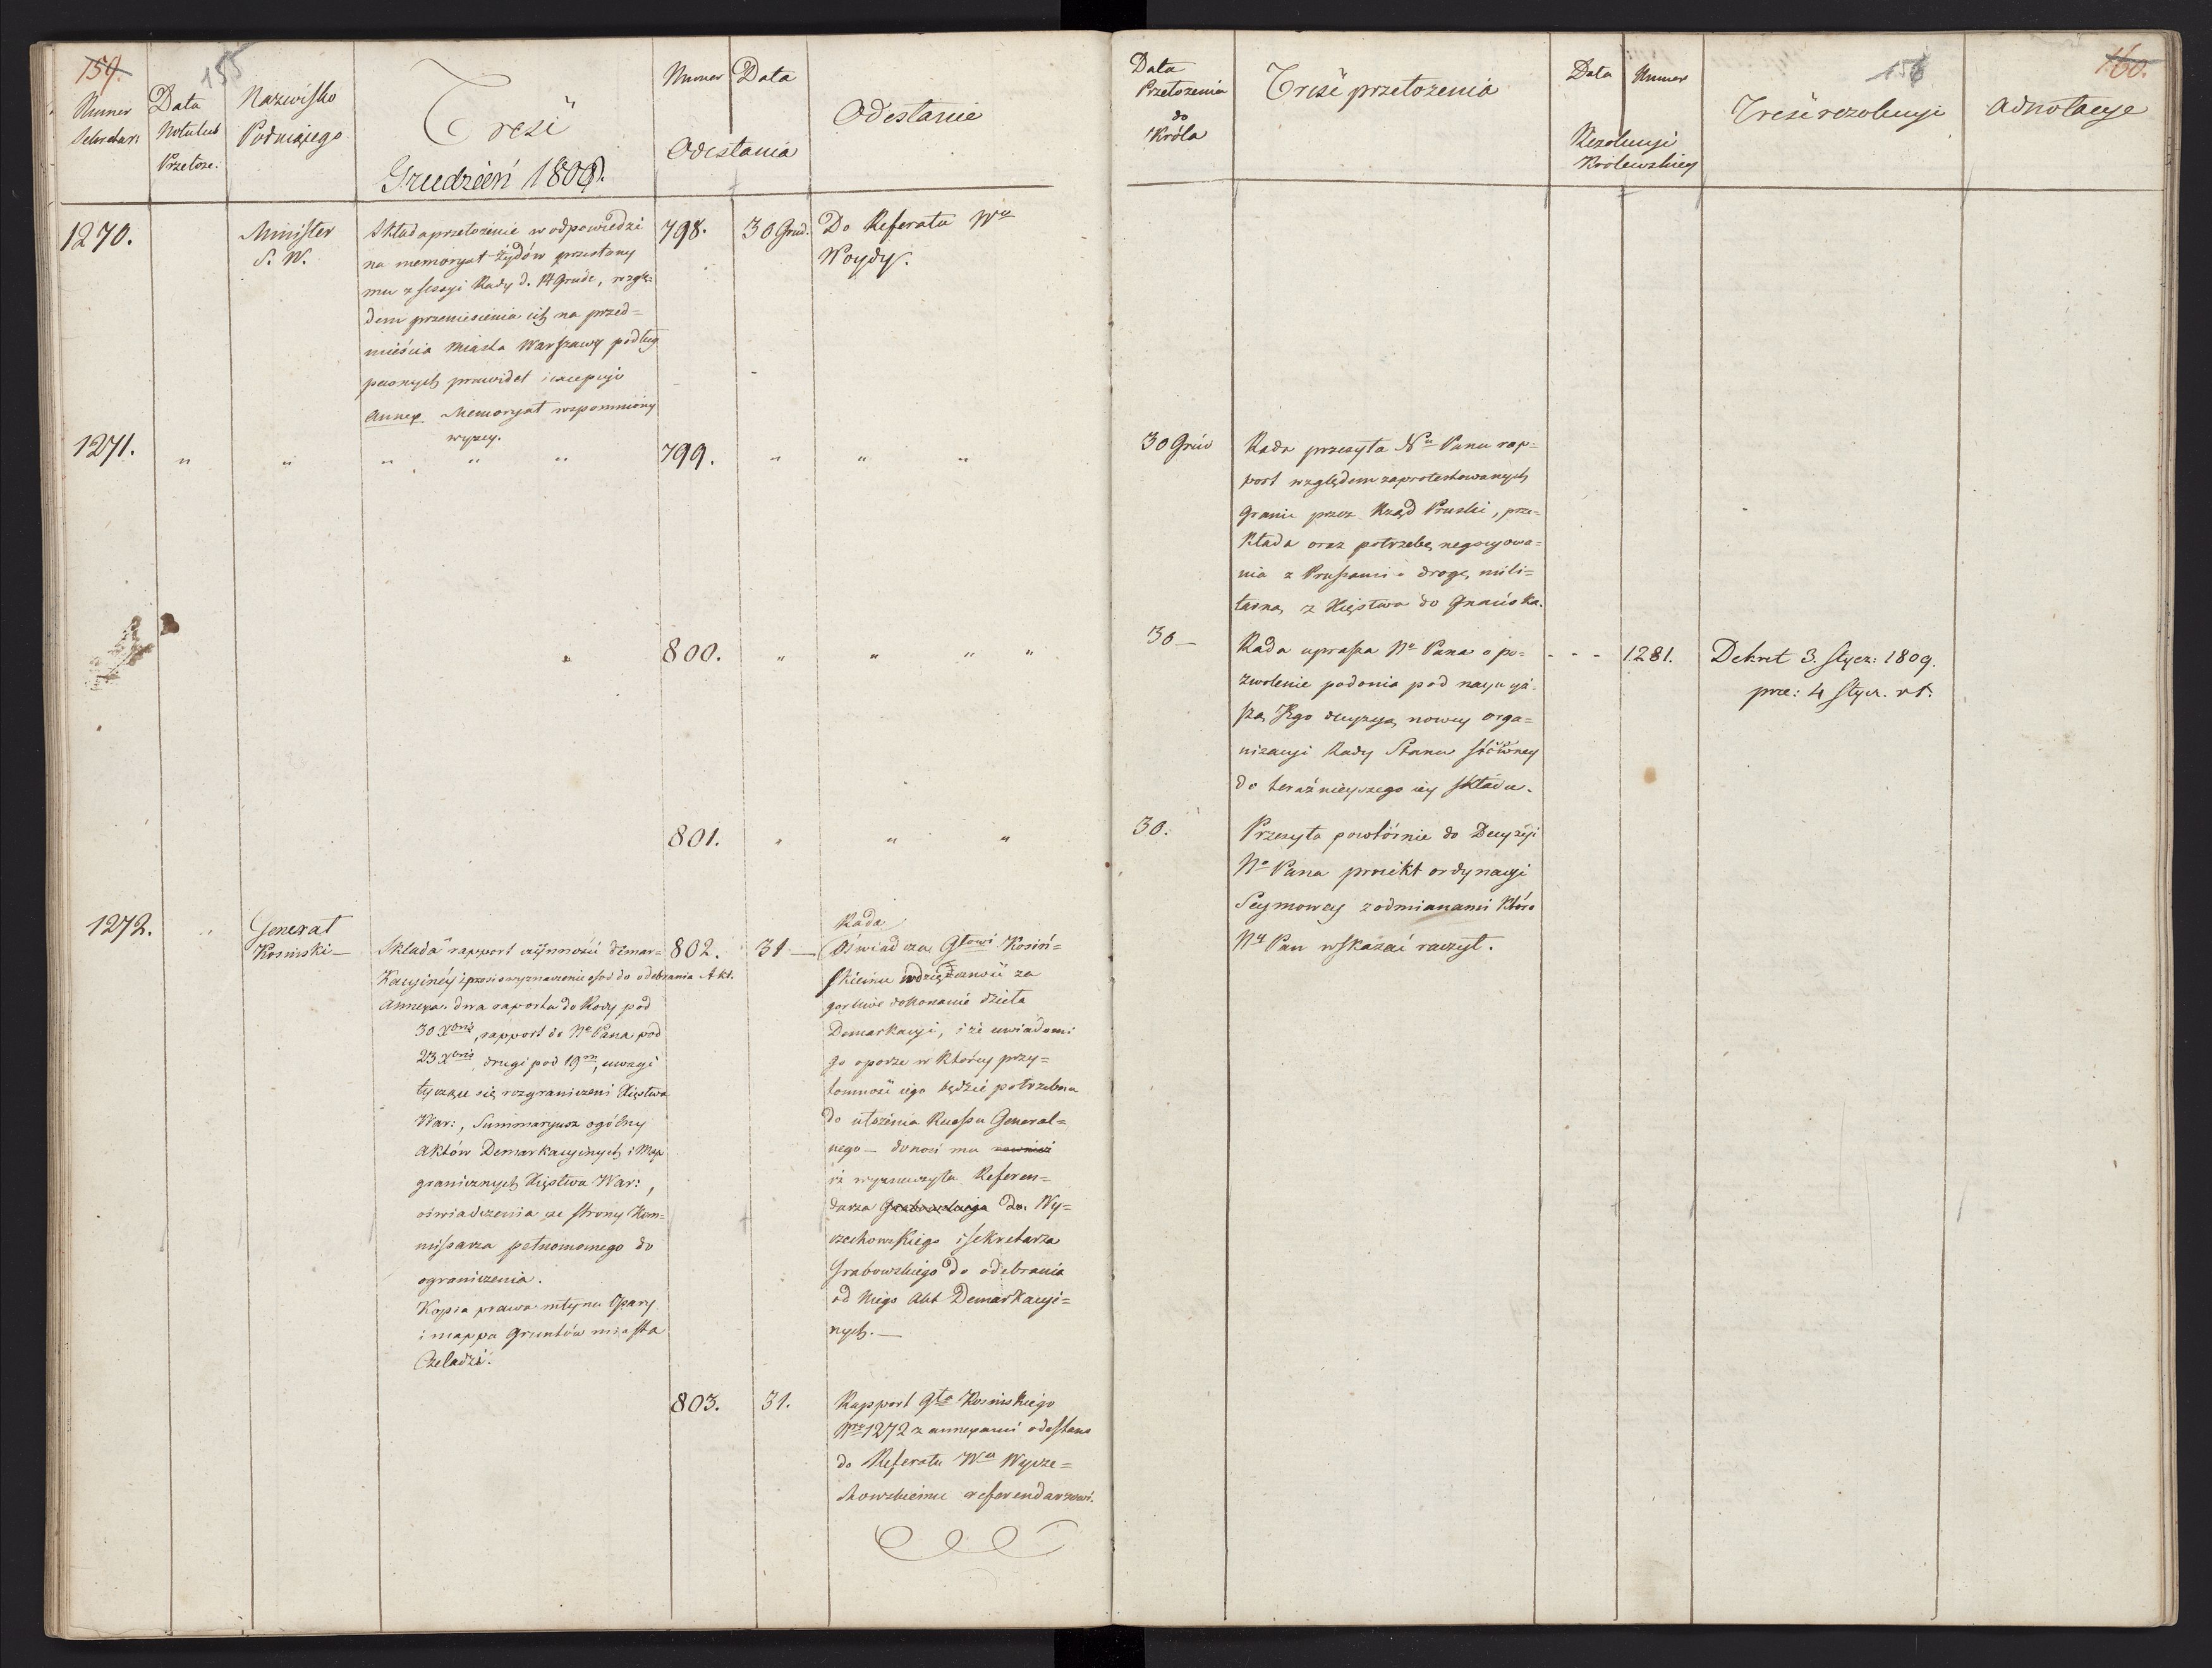 159.
155
Numer
Sekretari
Data
Notulub
Przełoże:
Nazwisko
Podaiącego
Treść
Grudzień 1808.
Numer
Data
Odesłania
Odesłanie
1270.
Minister
S. W.
Składa przełożenie w odpowiedzi
na memoryał żydów przesłany
mu z sessyi Rady d. 14 Grudz, wzglę-
dem przeniesienia ich na przed=
mieścia Miasta Warszawy podług
pewnych prawideł i excepcyi
Annex. Memoryał wspomniony
wyżey.
798.
30 Grud.
Do Referatu Wu
Woydy.
1271.
" " " " "
799.
" " "
800.
" " " "
801.
" " "
1272.
Generał
Kosinski —
Składa rapport czynności demar=
kacyiney i prosi o wyznaczenie osob do odebrania Akt.
Annexa. dwa raporta do Rady pod
30 Xbris, rapport do No Pana pod
23 Xbris, drugi pod 19m, uwagi
tyczące się rozgraniczeni Xięstwa
War:, Summaryusz ogólny
aktów Demarkacyinych i Map
granicznych Xięstwa War:,
oświadczenia ze strony Kom=
missarza pełnomocnego do
ograniczenia.
Kopia prawa młynu Opary
i mappa Gruntów miasta
Czeladzi.
802.
31 —
Rada
Oświadcza Głowi Kosiń=
skiemu wdzięczność za
gorliwe dokonanie dzieła
Demarkacyi, i że uwiadomi
go oporze w którey przy=
tomność iego będzie potrzebna
do ułożenia Recessu General=
nego — donosi mu rownież
iż wyznaczyła Referen=
darza Grabowskiego do. Wy=
czechowskiego i sekretarza
Grabowskiego do odebrania
od Niego Akt Demarkacyi=
nych. —
803.
31.
Rapport Gła Kosinskiego
Nro 1272 z annexami odesłano
do Referatu Wu Wycze=
chowskiemu referendarzowi.
156
160.
Data
Przełożenia
do
Króla
Treść przełożenia
Data
Numer
Rezolucyi
Krolewskiey
Treść rezolucyi
Adnotacye
30 Grud
Rada przesyła Nu Panu rap=
port względem zaprotestowanych
Granic przez Rząd Pruski, prze=
kłada oraz potrzebę negocyowa=
nia z Prussami o drogę mili=
tarną z Xięstwa do Gdańska.
30 —
Rada uprasza No Pana o po=
zwolenie podania pod nayw yż=
szą Jego decyzyą nowey orga=
nizacyi Rady Stanu stósowney
do teraźnieyszego iey składu.
- - -
1281.
Dekret 3. Stycz: 1809.
prze: 4 Stycz. r. t.
30.
Przesyła powtórnie do Decyzyi
No Pana proiekt ordynacyi
Seymowey z odmianami które
Ny Pan wskazać raczył.